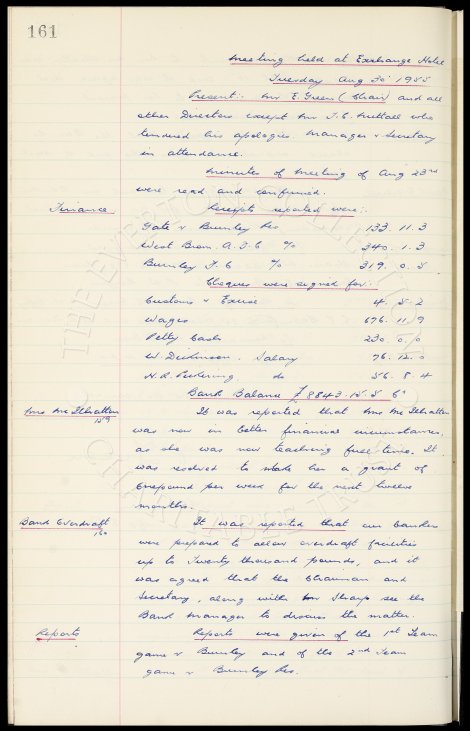 161
Meeting held at Exchange Hotel
Tuesday Aug 30 1955
Present:- Mr E. Green (Chair) and all
other Directors except Mr T.C. Nuttall who
tendered his apologies. Manager & Secretary
in attendance.
Minutes of Meeting of Aug 23rd
were read and confirmed.
Finance Receipts reported were:-
Gate v Burnley Res 133. 11. 3
West Brom. A.F.C % 340. 1. 3
Burnley F.C % 319. 0. 5
Cheques were signed for:-
Customs & Excise 4. 5. 2
Wages 676. 11. 9
Petty Cash 230. 0. 0
W. Dickinson. Salary 76. 12. 0
H.R. Pickering do 56. 8. 4
Bank Balance £8843. 15. 5
Mrs McIlhatton It was reported that Mrs McIlhatton
was now in better financial circumstances,
as she was now teaching full time. It
was resolved to make her a grant of
Onepound per week for the next twelve
months.
Bank Overdraft It was reported that our Bankers
were prepared to allow overdraft facilities
up to Twenty thousand pounds, and it
was agreed that the Chairman and
Secretary, along with Mr Sharp see the
Bank Manager to discuss the matter.
Reports Reports were given of the 1st Team
game v Burnley and of the 2nd Team
game v Burnley Res.
THE EVERTON COLLECTION
CHARITABLE TRUST